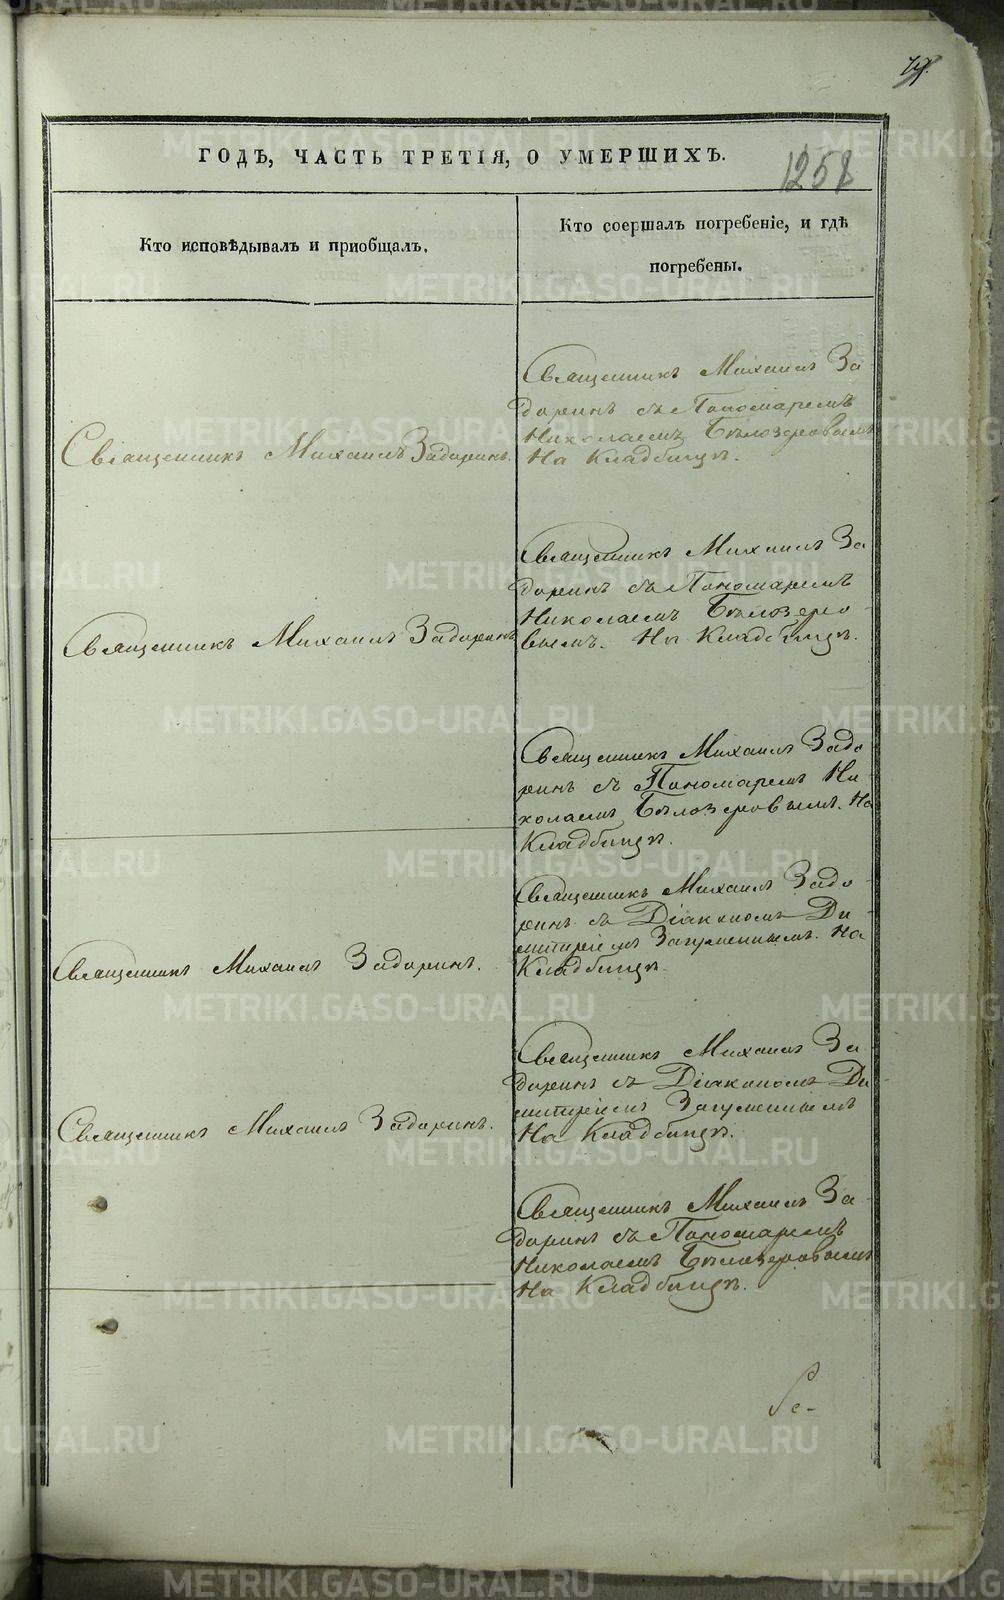 1258
ГОДЪ, ЧАСТЬ ТРЕТІЯ, О УМЕРШИХЪ.
Кто исповѣдывалъ и приобщалъ.
Кто соершалъ погребеніе, и гдѣ
погребены.
Священникъ Михаилъ Задоринъ.
Священникъ Михаилъ За
доринъ съ Пономаремъ
Николаемъ Бѣлозеровымъ
На Кладбищѣ.
Священникъ Михаилъ Задоринъ
Священникъ Михаилъ За
доринъ съ Пономаремъ
Николаемъ Бѣлозеро-
вымъ. На Кладбищѣ.
Священникъ Михаилъ Задо
ринъ съ Пономаремъ Ни-
колаемъ Бѣлозеровымъ. На
Кладбищѣ.
Священникъ Михаилъ Задоринъ.
Священникъ Михаилъ Задо-
ринъ съ Діакономъ Ди-
митріемъ Загуменнымъ. На
Кладбищѣ.
Священникъ Михаилъ Задоринъ.
Священникъ Михаилъ За-
доринъ съ Діакономъ Ди
митріемъ Загуменнымъ
На Кладбищѣ.
Священникъ Михаилъ За-
доринъ съ Пономаремъ
Николаемъ Бѣлозеровымъ
На Кладбищѣ.
METRIKI.GASO-URAL.RU